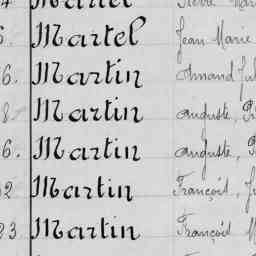 Martel Pierre
5. Martel Jean Marie
6. Martin Amand Jul
8. Martin Auguste, Pi
6. Martin Auguste, P
2 Martin François, J
23 Martin François M